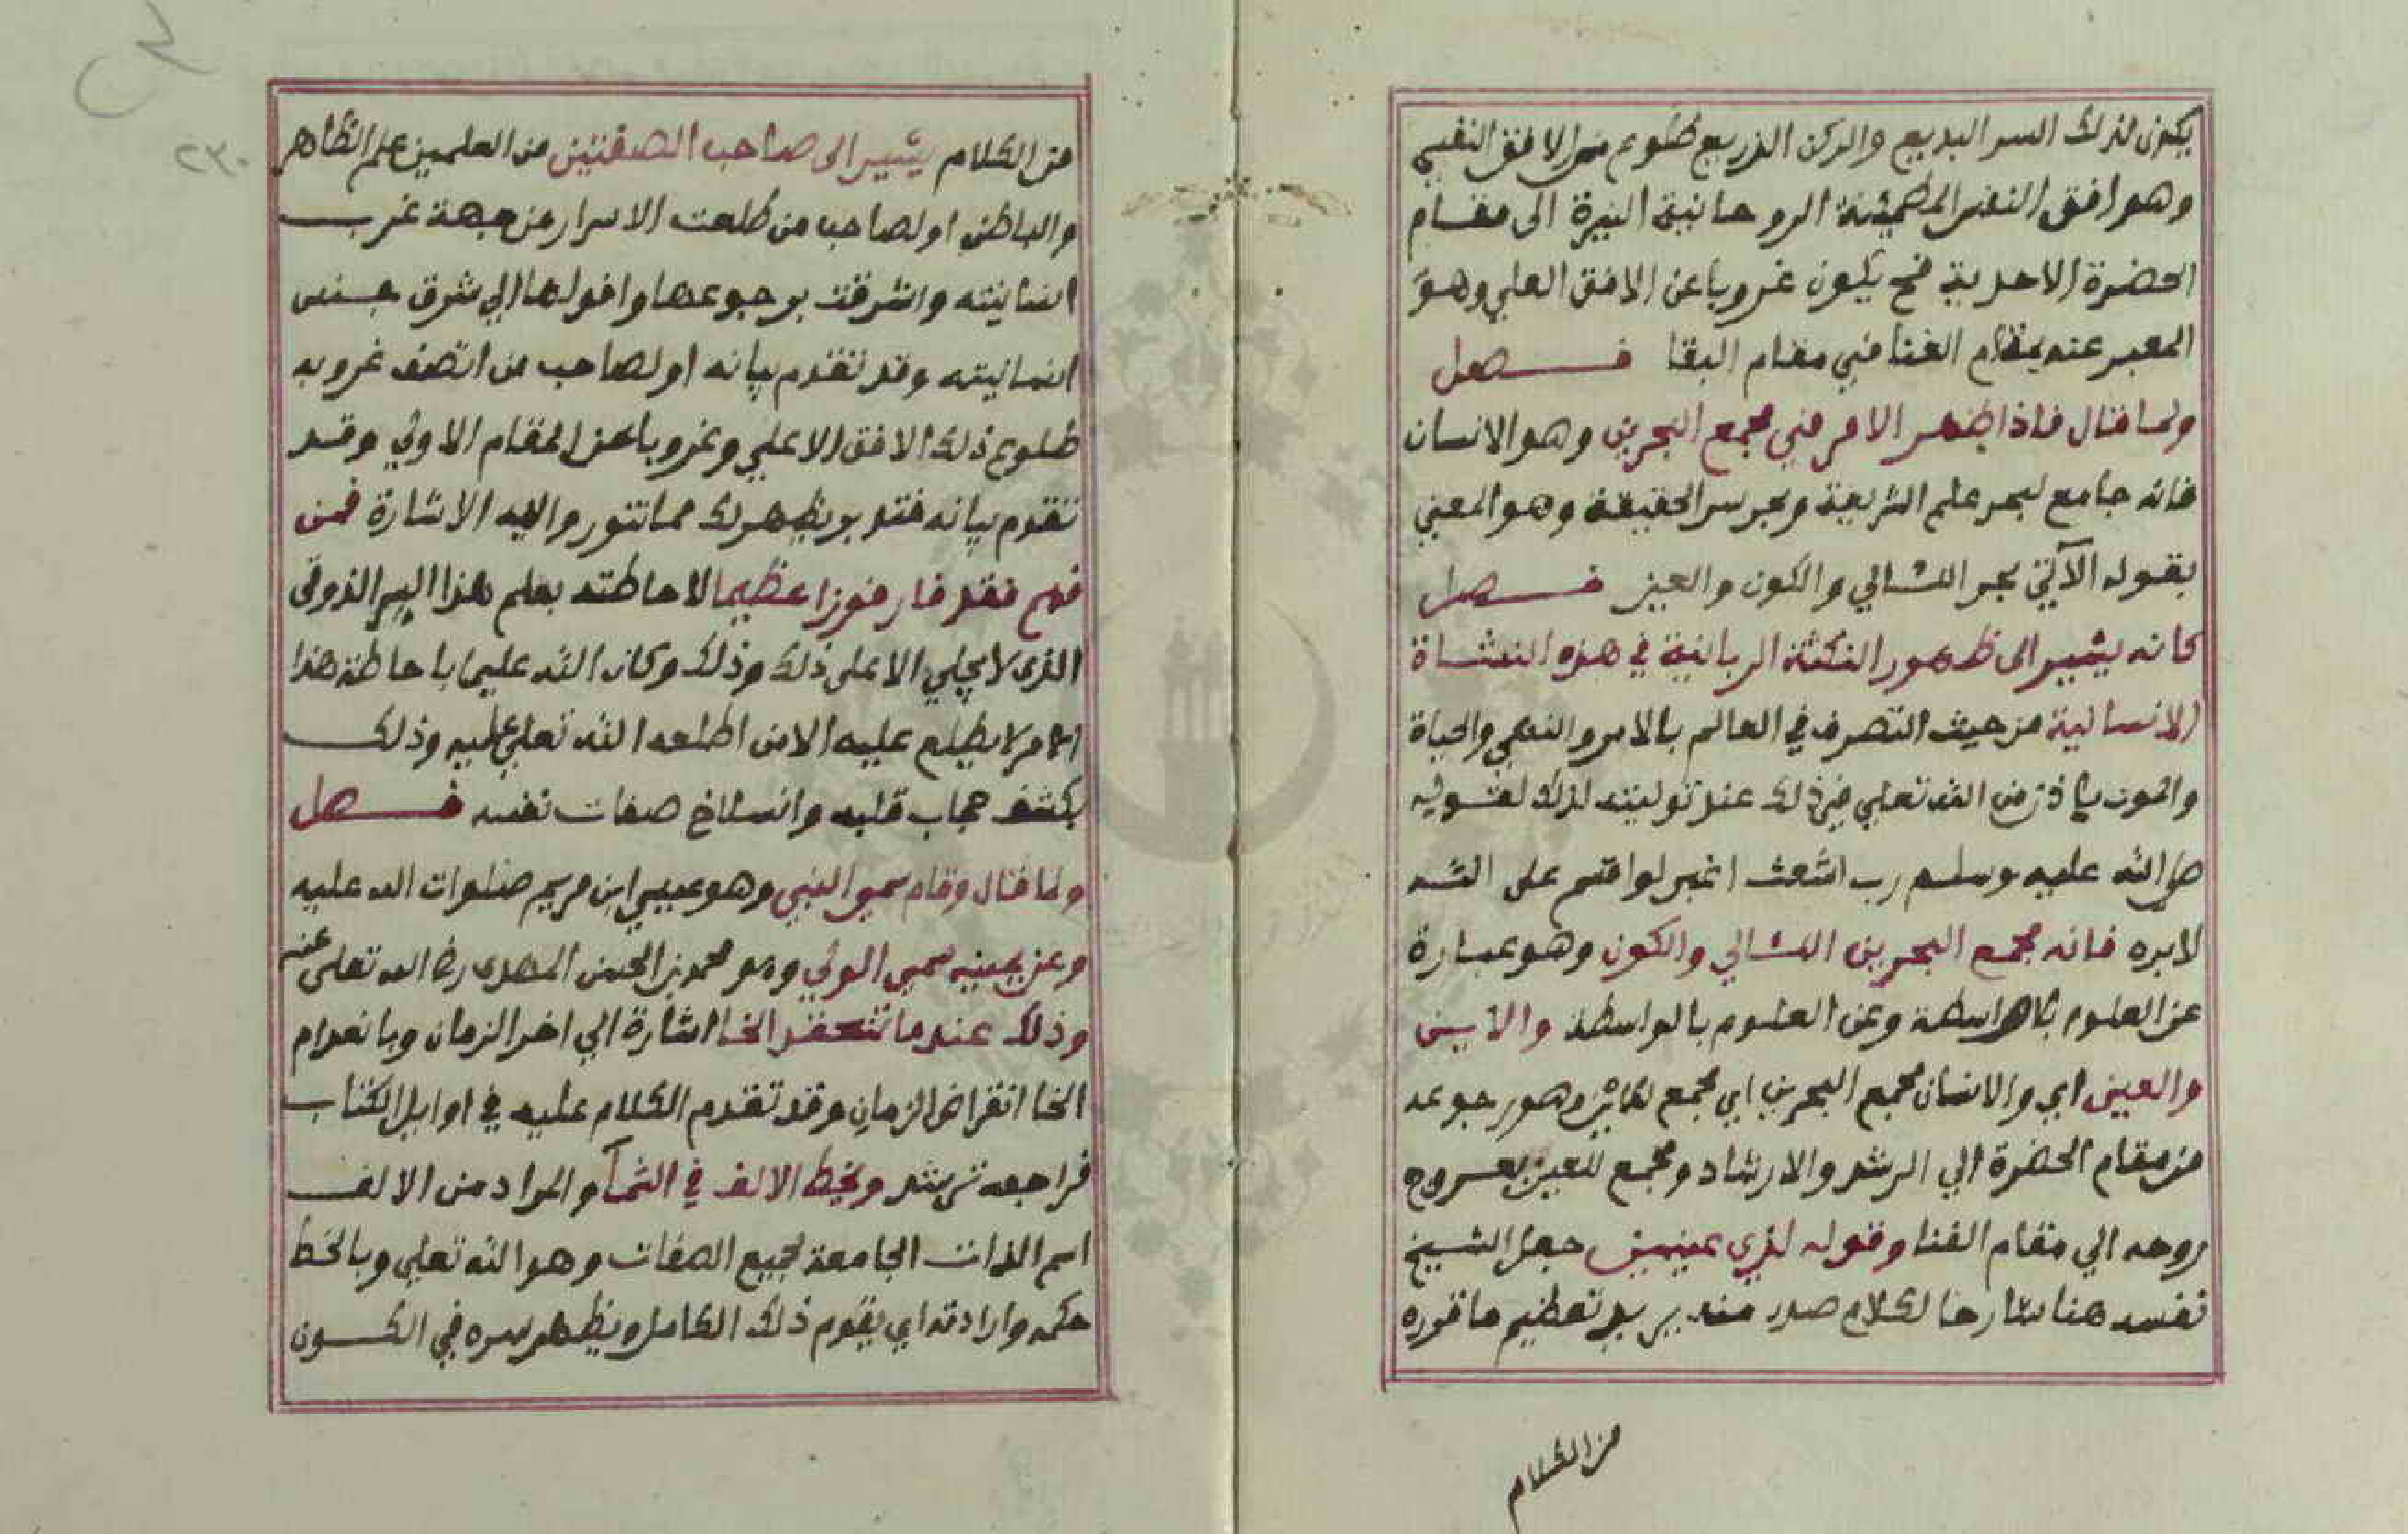 يكون لذلك السر البديع والركن الذريع طلوع من الافق النفسي
وهو افق النفس المطمئنة الروحانية النيرة الى مقام
الحضرة الاحدية فح يكون غروبا عن الافق العلي وهو
المعبر عنه بمقام الفنا في مقام البقا فصل
ولما قال فاذا ظهر الامر في مجمع البحرين وهو الانسان
فانه جامع لبحر علم الشريعة وبحر سر الحقيقة وهو المعني
بقوله الآتي بحر اللئالي والكون والعين فصل
كانه يشير الى ظهور النكتة الربانية في هذه النشاة
الانسانية من حيث التصرف في العالم بالامر والنهي والحياة
والموت باذن من الله تعلي في ذلك عند توليته لذلك لقوله
صلى الله عليه وسلم رب اشعث اغبر لو اقسم على الله
لابره فانه مجمع البحرين اللئالي والكون وهو عبارة
عن العلوم بلا واسطة وعن العلوم بالواسطة والاين
والعين اي والانسان مجمع البحرين اي مجمع وهو رجوعه
من مقام الحضرة الي الرشد والارشاد ومجمع للعين بعروج
روحه الي مقام الفنا وقوله لذي عينين جعل الشيخ
نفسه هنا شارحا لكلام صدر منه يريد تعظيم ما قرره
من الكلام
من الكلام يشير الى صاحب الصفتين من العلمين علم الظاهر
والباطن او لصاحب من طلعت الاسرار من جهة غرب
انسانيته واشرقت برجوعها وافولها الي شرق جنس
انسانيته وقد تقدم بيانه او لصاحب من اتصف غروبه
طلوع ذلك الافق الاعلي وغروبا عن المقام الاولي وقد
تقدم بيانه فتدبر يظهر لك مما تنور واليه الاشارة فمن
فهم فقد فاز فوزا عظيما لاحاطته بعلم هذا السر الذوقي
الذي لا يجلي الا علي ذلك وذلك وكان الله عليما باحاطة هذا
الامر لا يطلع عليه الا من اطلعه الله تعلي عليه وذلك
بكشف حجاب قلبه وانسلاخ صفات نفسه فصل
ولما قال وقام سمي النبي وهو عيسي ابن مريم صلوات الله عليه
وعن يمينه سمي الولي وهو محمد بن الحسن المهدي رضا الله تعلى عنه
وذلك عندما تتحقد الخا اشارة الي اخر الزمان وبانعدام
الخا انقراض الزمان وقد تقدم الكلام عليه في اوايل الكتاب
فراجعه ترشد ويخط الالف في الثمآ والمراد من الالف
اسم الذات الجامعة لجميع الصفات وهو الله تعلي وبالخط
حكمه وارادته اي يقوم ذلك الكامل ويظهر سره في الكون
٢٣٠